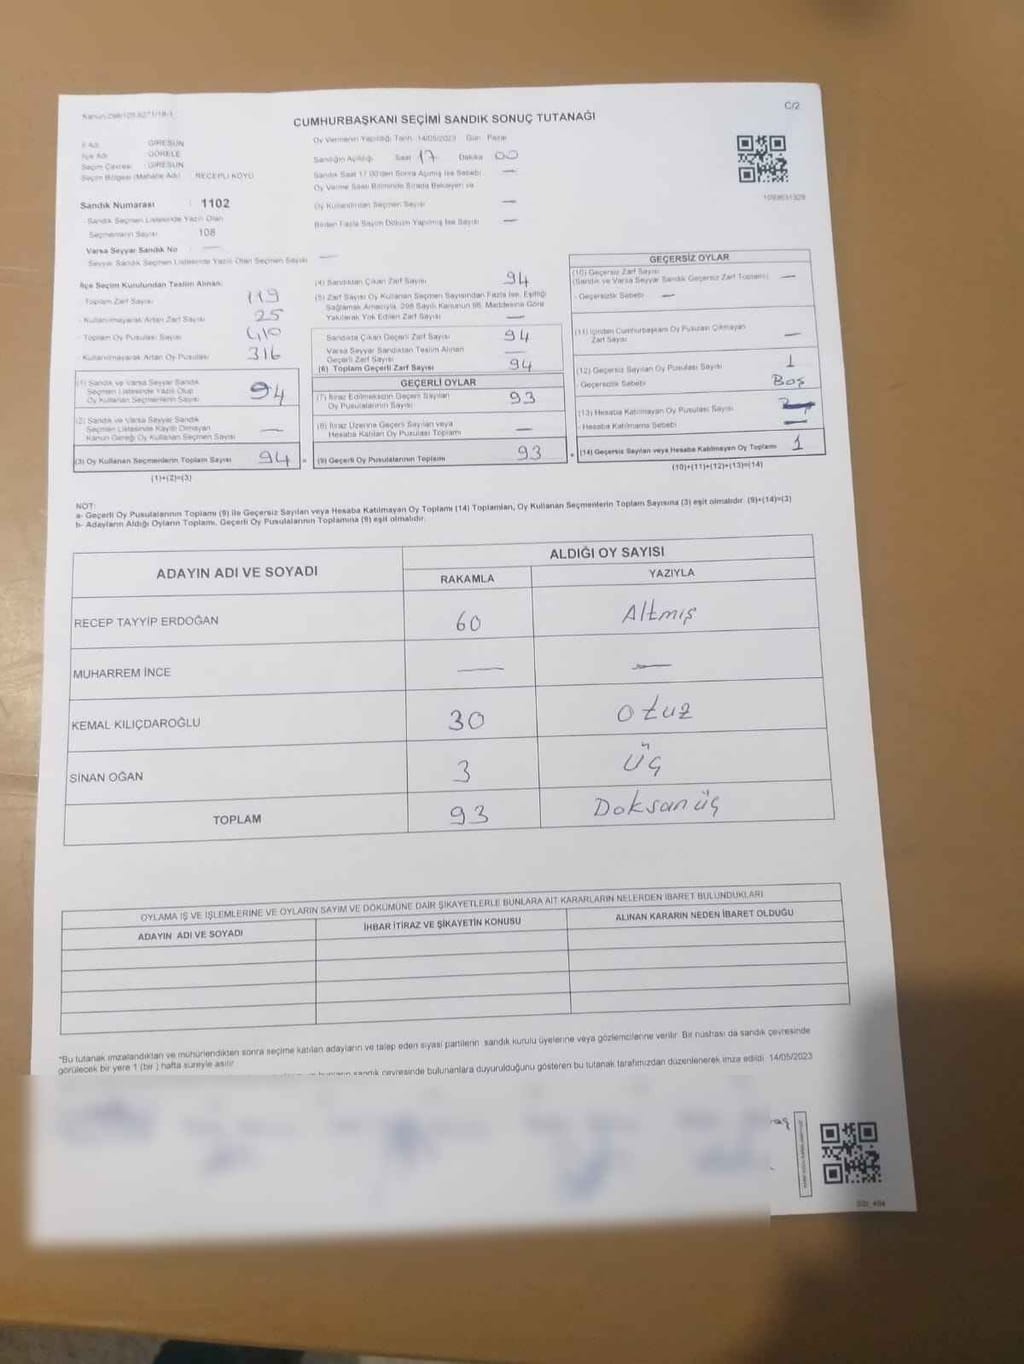 Kanun:298/105.6271/18-1
C/2
CUMHURBAŞKANI SEÇİMİ SANDIK SONUÇ TUTANAĞI
İl Adı : GİRESUN
İlçe Adı : GÖRELE
Seçim Çevresi : GİRESUN
Seçim Bölgesi (Mahalle Adı) : RECEPLİ KÖYÜ
Sandık Numarası : 1102
Sandık Seçmen Listesinde Yazılı Olan
Seçmenlerin Sayısı : 108
Varsa Seyyar Sandık No : —
Seyyar Sandık Seçmen Listesinde Yazılı Olan Seçmen Sayısı : —
Oy Vermenin Yapıldığı Tarih: 14/05/2023 Gün: Pazar
Sandığın Açıldığı Saat 17 Dakika 00
Sandık Saat 17.00'den Sonra Açılmış İse Sebebi —
Oy Verme Saati Bitiminde Sırada Bekleyen ve
Oy Kullandırılan Seçmen Sayısı —
Birden Fazla Sayım Döküm Yapılmış İse Sayısı —
İlçe Seçim Kurulundan Teslim Alınan:
- Toplam Zarf Sayısı 119
- Kullanılmayarak Artan Zarf Sayısı 25
- Toplam Oy Pusulası Sayısı 410
- Kullanılmayarak Artan Oy Pusulası 316
(1) Sandık ve Varsa Seyyar Sandık
Seçmen Listesinde Yazılı Olup
Oy Kullanan Seçmenlerin Sayısı 94
(2) Sandık ve Varsa Seyyar Sandık
Seçmen Listesinde Kayıtlı Olmayan
Kanun Gereği Oy Kullanan Seçmen Sayısı —
(3) Oy Kullanan Seçmenlerin Toplam Sayısı 94 =
(1)+(2)=(3)
(4) Sandıktan Çıkan Zarf Sayısı 94
(5) Zarf Sayısı Oy Kullanan Seçmen Sayısından Fazla İse, Eşitliği
Sağlamak Amacıyla, 298 Sayılı Kanunun 98. Maddesine Göre
Yakılarak Yok Edilen Zarf Sayısı —
Sandıkta Çıkan Geçerli Zarf Sayısı 94
Varsa Seyyar Sandıktan Teslim Alınan
Geçerli Zarf Sayısı —
(6) Toplam Geçerli Zarf Sayısı 94
GEÇERLİ OYLAR
(7) İtiraz Edilmeksizin Geçerli Sayılan
Oy Pusulalarının Sayısı 93
(8) İtiraz Üzerine Geçerli Sayılan veya
Hesaba Katılan Oy Pusulası Toplamı —
(9) Geçerli Oy Pusulalarının Toplamı 93 +
GEÇERSİZ OYLAR
(10) Geçersiz Zarf Sayısı
(Sandık ve Varsa Seyyar Sandık Geçersiz Zarf Toplamı) —
- Geçersizlik Sebebi —
(11) İçinden Cumhurbaşkanı Oy Pusulası Çıkmayan
Zarf Sayısı —
(12) Geçersiz Sayılan Oy Pusulası Sayısı 1
- Geçersizlik Sebebi Boş
(13) Hesaba Katılmayan Oy Pusulası Sayısı
- Hesaba Katılmama Sebebi —
(14) Geçersiz Sayılan veya Hesaba Katılmayan Oy Toplamı 1
(10)+(11)+(12)+(13)=(14)
NOT:
a- Geçerli Oy Pusulalarının Toplamı (9) ile Geçersiz Sayılan veya Hesaba Katılmayan Oy Toplamı (14) Toplamları, Oy Kullanan Seçmenlerin Toplam Sayısına (3) eşit olmalıdır. (9)+(14)=(3)
b- Adayların Aldığı Oyların Toplamı, Geçerli Oy Pusulalarının Toplamına (9) eşit olmalıdır.
ADAYIN ADI VE SOYADI
ALDIĞI OY SAYISI
RAKAMLA YAZIYLA
RECEP TAYYİP ERDOĞAN 60 Altmış
MUHARREM İNCE — —
KEMAL KILIÇDAROĞLU 30 Otuz
SİNAN OĞAN 3 Üç
TOPLAM 93 Doksanüç
OYLAMA İŞ VE İŞLEMLERİNE VE OYLARIN SAYIM VE DÖKÜMÜNE DAİR ŞİKAYETLERLE BUNLARA AİT KARARLARIN NELERDEN İBARET BULUNDUKLARI
ADAYIN ADI VE SOYADI İHBAR İTİRAZ VE ŞİKAYETİN KONUSU ALINAN KARARIN NEDEN İBARET OLDUĞU
*Bu tutanak imzalandıktan ve mühürlendikten sonra seçime katılan adayların ve talep eden siyasi partilerin sandık kurulu üyelerine veya gözlemcilerine verilir. Bir nüshası da sandık çevresinde
görülecek bir yere 1 (bir ) hafta süreyle asılır.
sandık çevresinde bulunanlara duyurulduğunu gösteren bu tutanak tarafımızdan düzenlenerek imza edildi. 14/05/2023